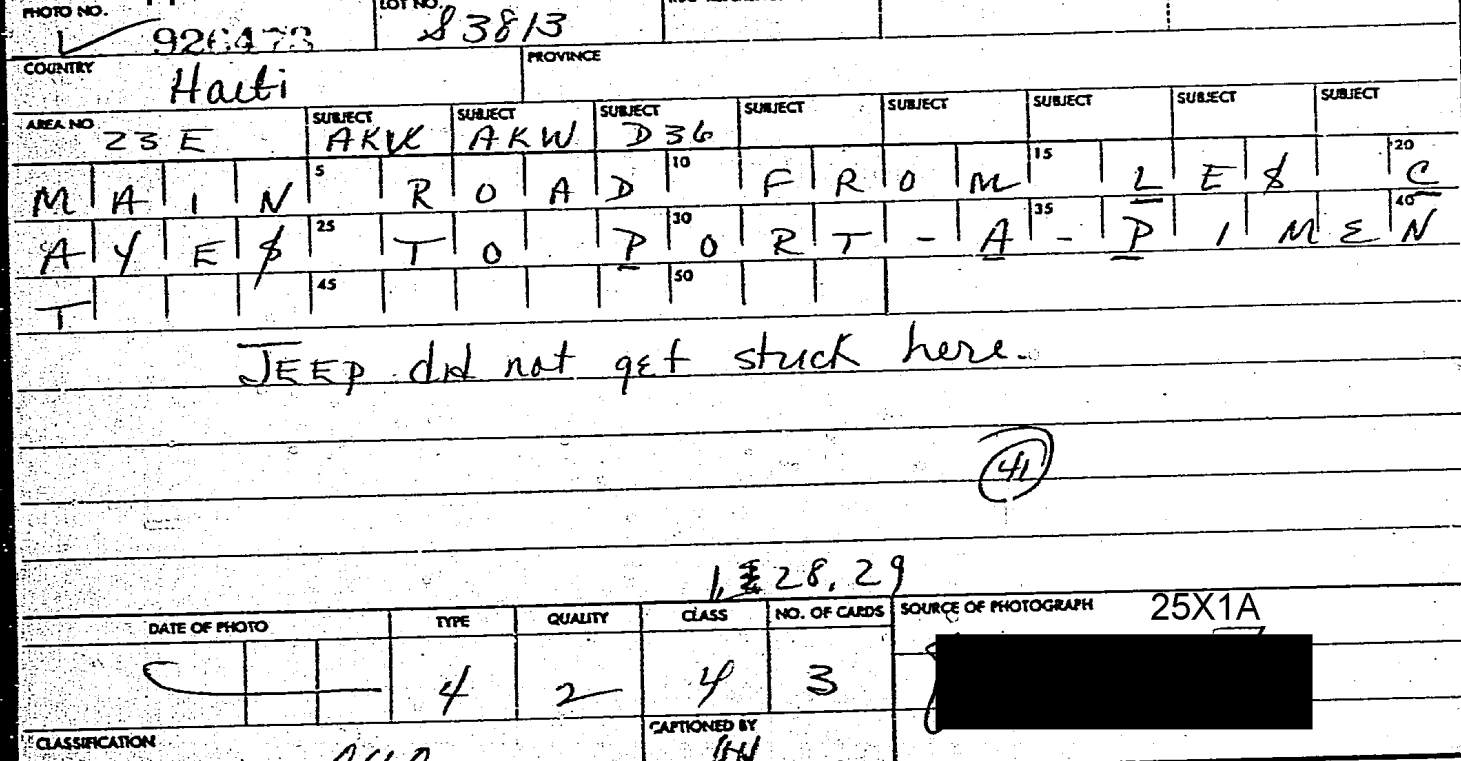 PHOTO NO. 926473 LOT NO. S3813
COUNTRY Haiti PROVINCE
AREA NO 23E SUBJECT AKK SUBJECT AKW SUBJECT D36 SUBJECT SUBJECT SUBJECT SUBJECT SUBJECT
5 10 15 20
MAIN ROAD FROM LES C
25 30 35 40
AYES TO PORT-A-PIMEN
45 50
T
JEEP did not get stuck here.
41
1, 28, 29
DATE OF PHOTO TYPE QUALITY CLASS NO. OF CARDS SOURCE OF PHOTOGRAPH 25X1A
4 2 4 3
CLASSIFICATION CAPTIONED BY